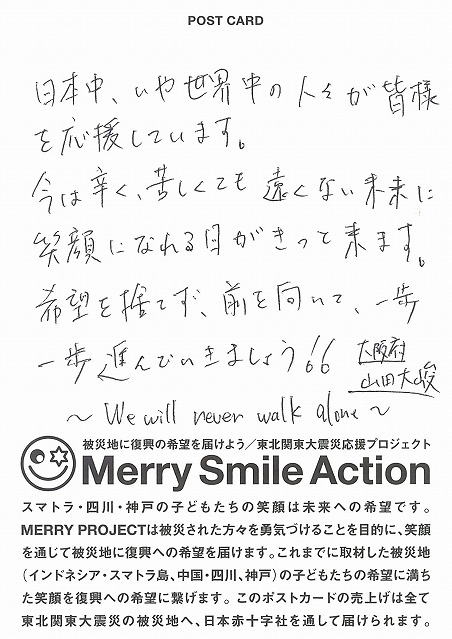 POST CARD
日本中、いや世界中の人々が皆様
を応援しています。
今は辛く、苦しくても遠くない未来に
笑顔になれる日がきっと来ます。
希望を捨てず、前を向いて、一歩
一歩進んでいきましょう!!
大阪府
山田大峻
～We will never walk alone～
被災地に復興の希望を届けよう／東北関東大震災応援プロジェクト
Merry Smile Action
スマトラ・四川・神戸の子どもたちの笑顔は未来への希望です。
MERRY PROJECTは被災された方々を勇気づけることを目的に、笑顔
を通じて被災地に復興への希望を届けます。これまでに取材した被災地
（インドネシア・スマトラ島、中国・四川、神戸）の子どもたちの希望に満ち
た笑顔を復興への希望に繋げます。このポストカードの売上げは全て
東北関東大震災の被災地へ、日本赤十字社を通して届けられます。